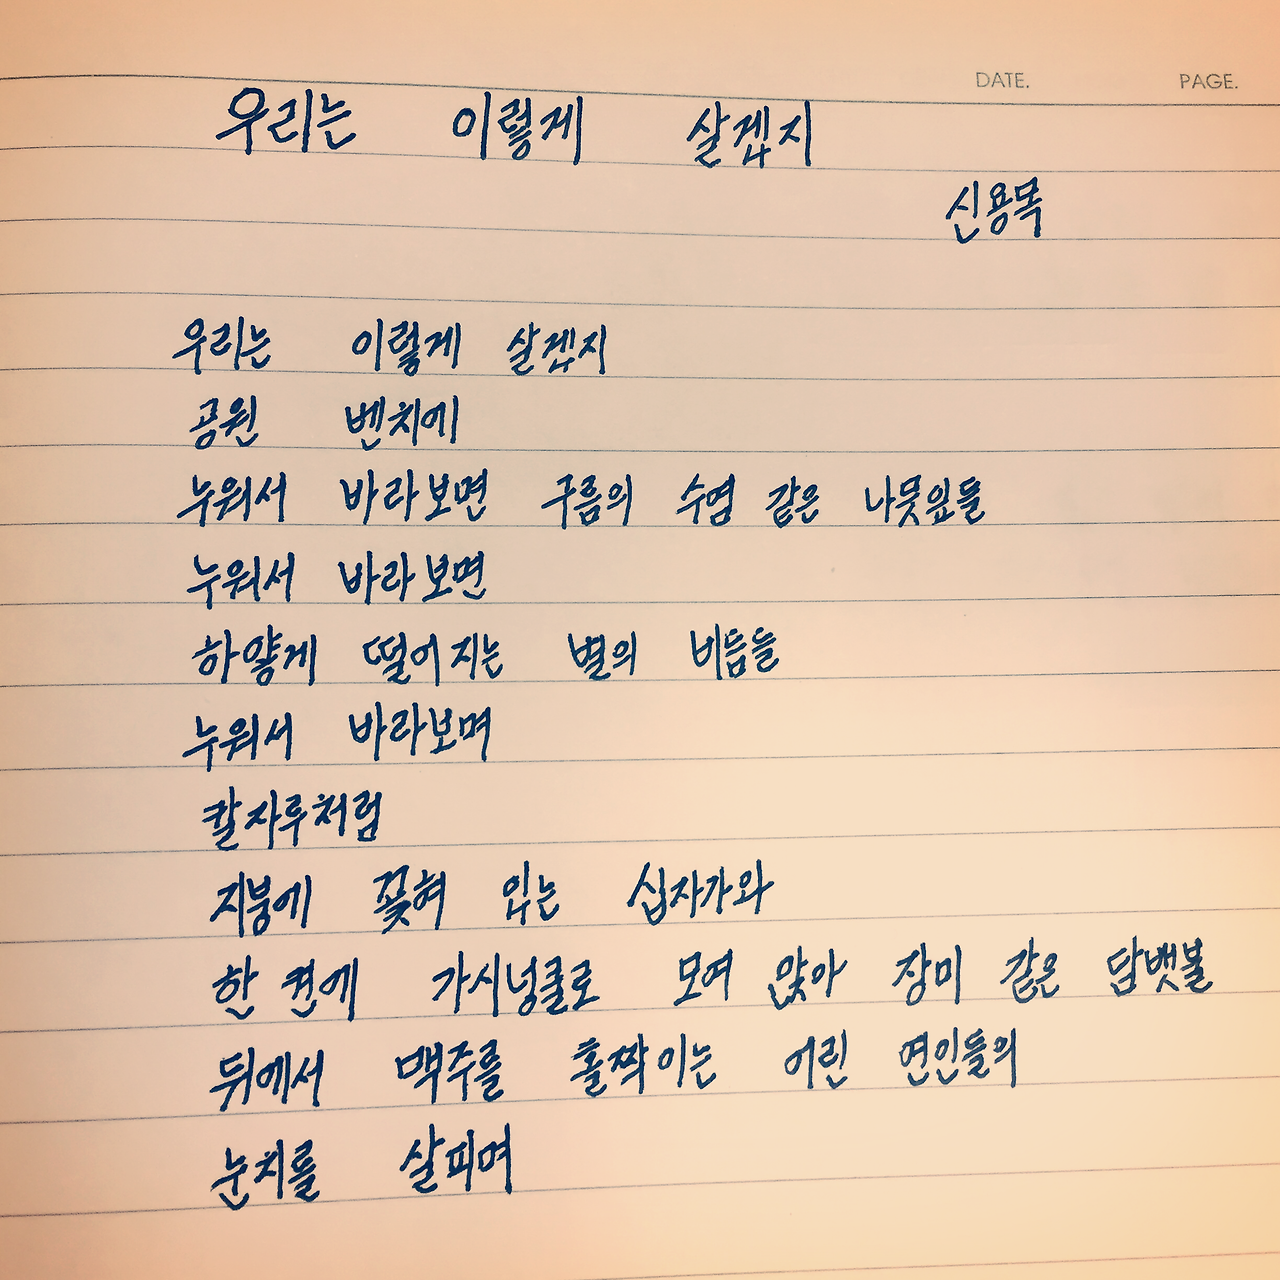 DATE. PAGE.
우리는 이렇게 살겠지
신용목
우리는 이렇게 살겠지
공원 벤치에
누워서 바라보면 구름의 수염 같은 나뭇잎들
누워서 바라보면
하얗게 떨어지는 별의 비듬들
누워서 바라보며
칼자루처럼
지붕에 꽂혀 있는 십자가와
한 켠에 가시넝쿨로 모여 앉아 장미 같은 담뱃불
뒤에서 맥주를 홀짝이는 어린 연인들의
눈치를 살피며